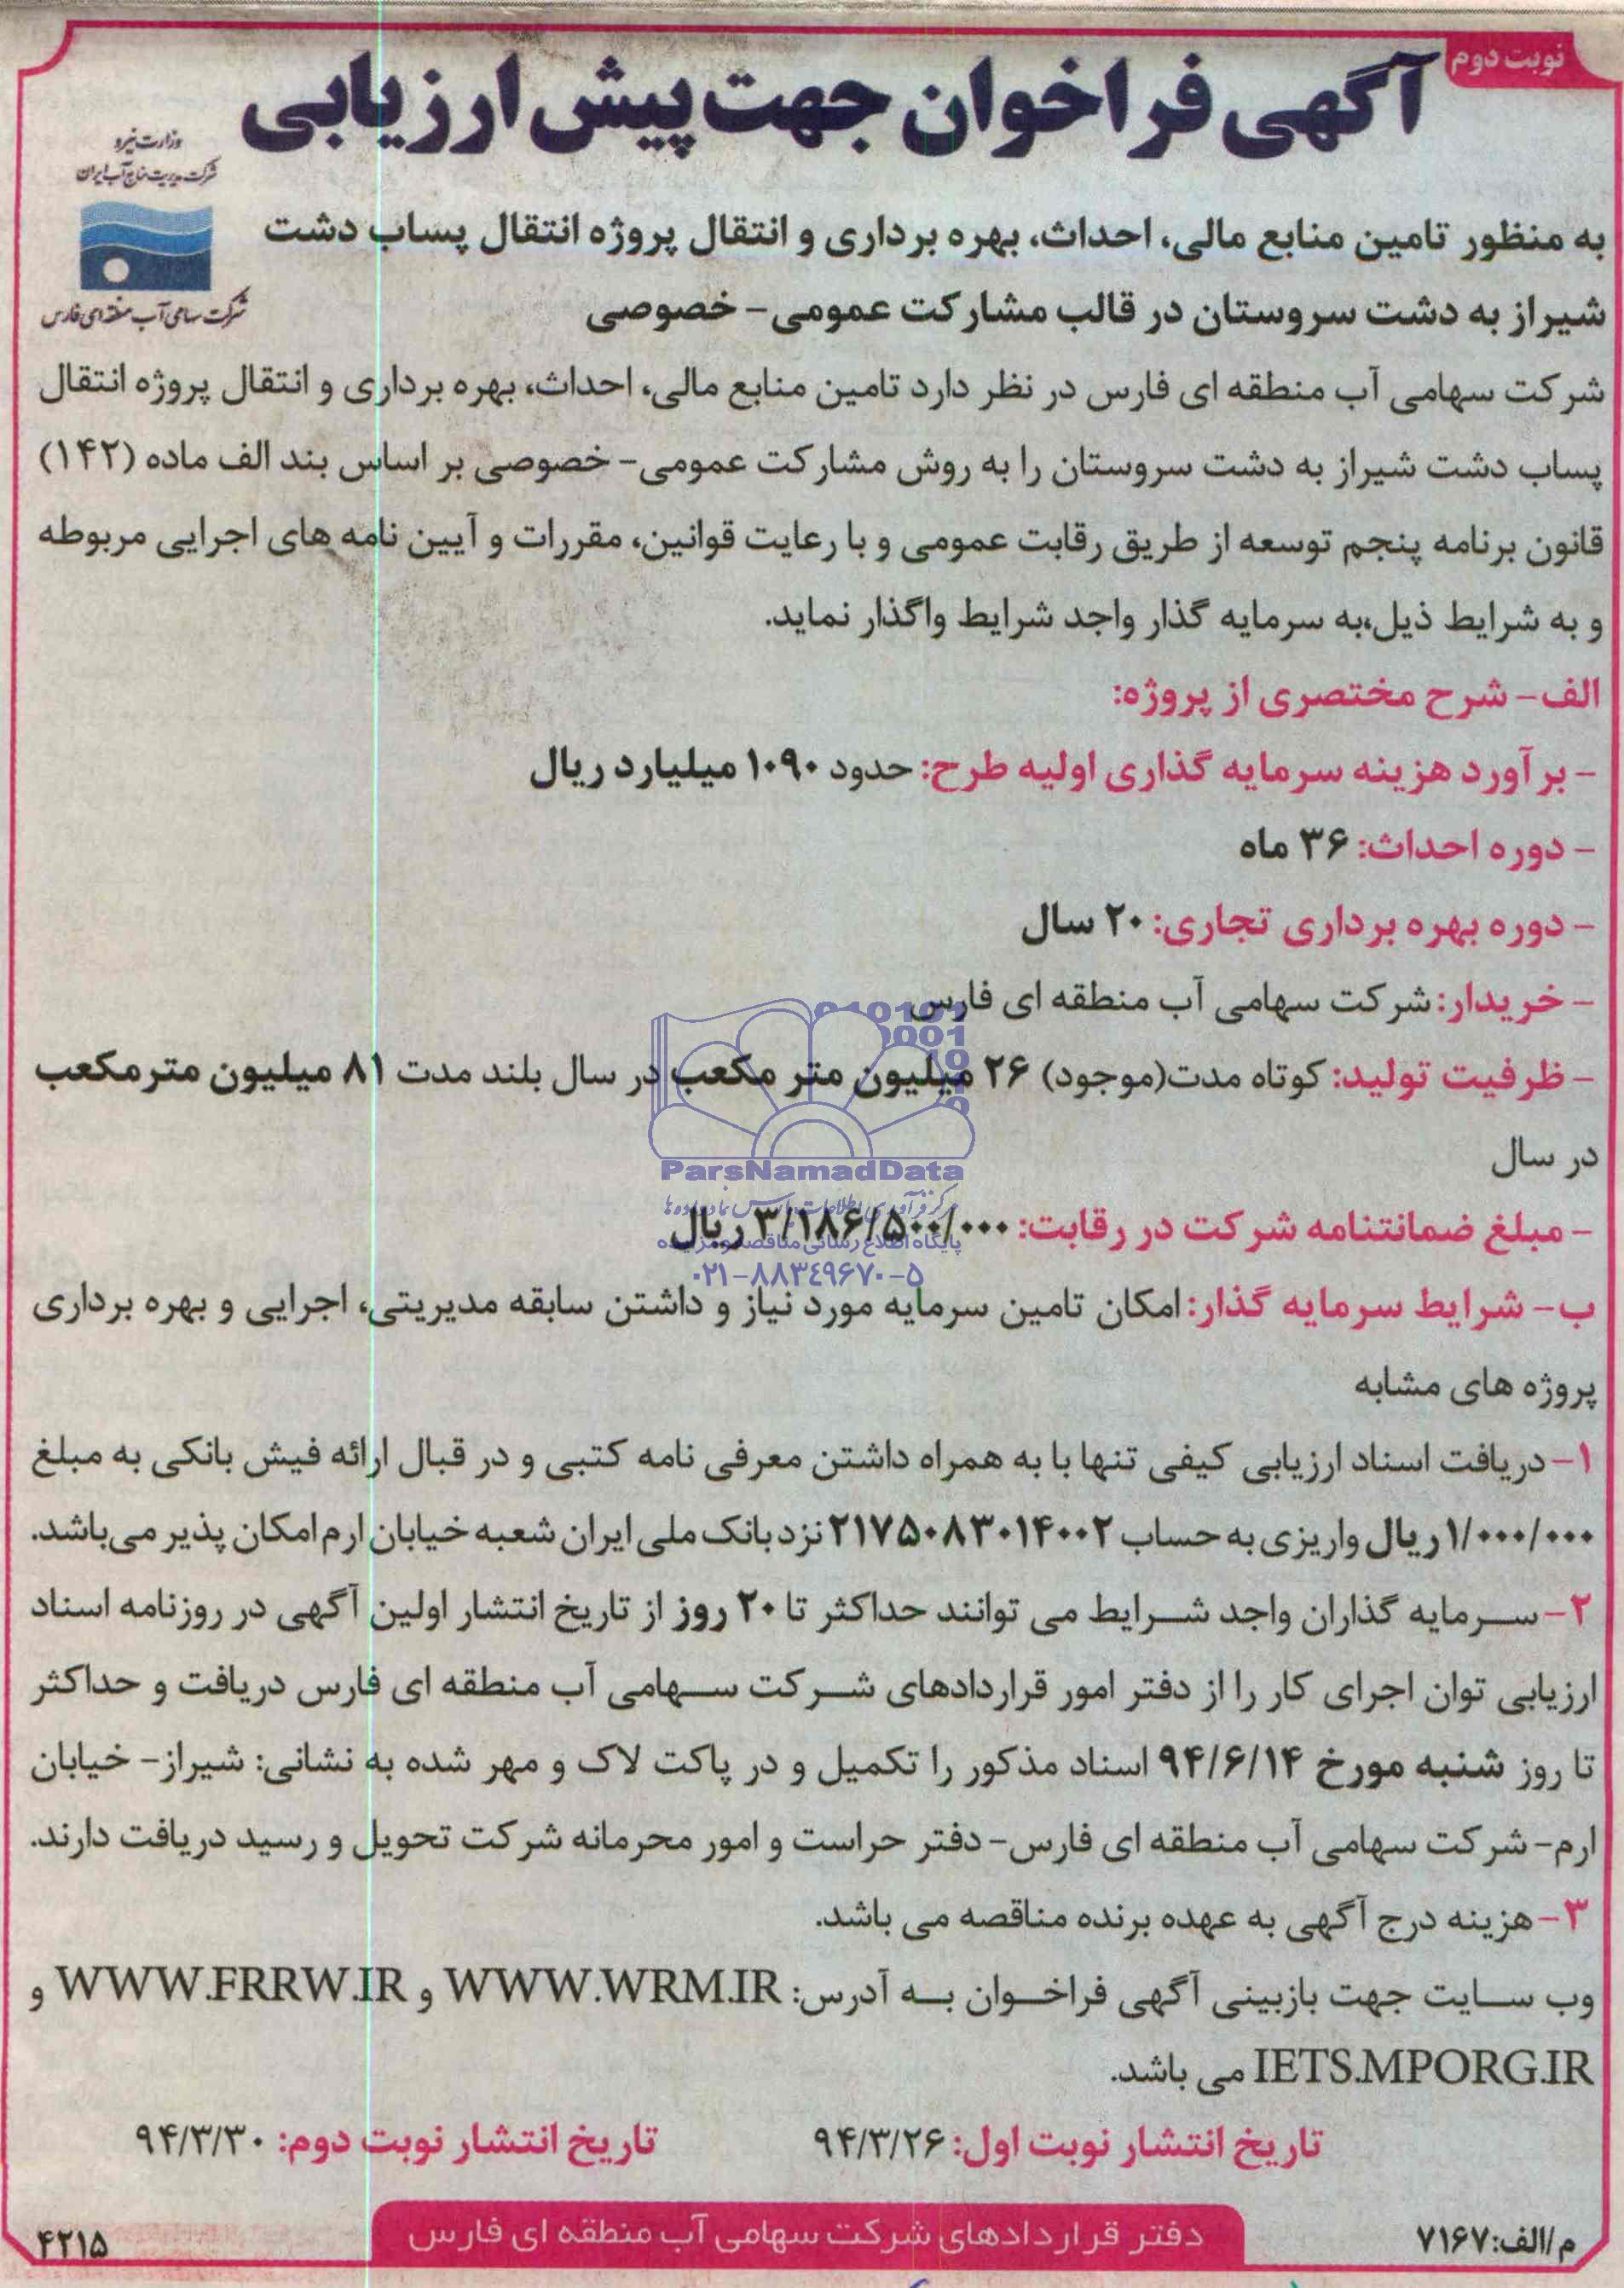 نوبت دوم
آگهی فراخوان جهت پیش ارزیابی
وزارت نیرو
شرکت مدیریت منابع آب ایران
شرکت سهامی آب منطقه ای فارس
به منظور تامین منابع مالی، احداث، بهره برداری و انتقال پروژه انتقال پساب دشت
شیراز به دشت سروستان در قالب مشارکت عمومی- خصوصی
شرکت سهامی آب منطقه ای فارس در نظر دارد تامین منابع مالی، احداث، بهره برداری و انتقال پروژه انتقال
پساب دشت شیراز به دشت سروستان را به روش مشارکت عمومی- خصوصی بر اساس بند الف ماده (۱۴۲)
قانون برنامه پنجم توسعه از طریق رقابت عمومی و با رعایت قوانین، مقررات و آیین نامه های اجرایی مربوطه
و به شرایط ذیل،به سرمایه گذار واجد شرایط واگذار نماید.
الف- شرح مختصری از پروژه:
- برآورد هزینه سرمایه گذاری اولیه طرح: حدود ۱۰۹۰ میلیارد ریال
- دوره احداث: ۳۶ ماه
- دوره بهره برداری تجاری: ۲۰ سال
- خریدار: شرکت سهامی آب منطقه ای فارس
- ظرفیت تولید: کوتاه مدت(موجود) ۲۶ میلیون متر مکعب در سال بلند مدت ۸۱ میلیون مترمکعب
در سال
- مبلغ ضمانتنامه شرکت در رقابت: ۳/۱۸۶/۵۰۰/۰۰۰ ریال
ParsNamadData
مرکز فرآوری اطلاعات پارس نماد داده ها
پایگاه اطلاع رسانی مناقصه و مزایده
۰۲۱-۸۸۳۴۹۶۷۰-۵
ب- شرایط سرمایه گذار: امکان تامین سرمایه مورد نیاز و داشتن سابقه مدیریتی، اجرایی و بهره برداری
پروژه های مشابه
۱- دریافت اسناد ارزیابی کیفی تنها با به همراه داشتن معرفی نامه کتبی و در قبال ارائه فیش بانکی به مبلغ
۱/۰۰۰/۰۰۰ ریال واریزی به حساب ۲۱۷۵۰۸۳۰۱۴۰۰۲ نزد بانک ملی ایران شعبه خیابان ارم امکان پذیر می‌باشد.
۲- سرمایه گذاران واجد شرایط می توانند حداکثر تا ۲۰ روز از تاریخ انتشار اولین آگهی در روزنامه اسناد
ارزیابی توان اجرای کار را از دفتر امور قراردادهای شرکت سهامی آب منطقه ای فارس دریافت و حداکثر
تا روز شنبه مورخ ۹۴/۶/۱۴ اسناد مذکور را تکمیل و در پاکت لاک و مهر شده به نشانی: شیراز- خیابان
ارم- شرکت سهامی آب منطقه ای فارس- دفتر حراست و امور محرمانه شرکت تحویل و رسید دریافت دارند.
۳- هزینه درج آگهی به عهده برنده مناقصه می باشد.
وب سایت جهت بازبینی آگهی فراخوان به آدرس: WWW.WRM.IR و WWW.FRRW.IR و
IETS.MPORG.IR می باشد.
تاریخ انتشار نوبت اول: ۹۴/۳/۲۶
تاریخ انتشار نوبت دوم: ۹۴/۳/۳۰
م/الف:۷۱۶۷
دفتر قراردادهای شرکت سهامی آب منطقه ای فارس
۴۲۱۵